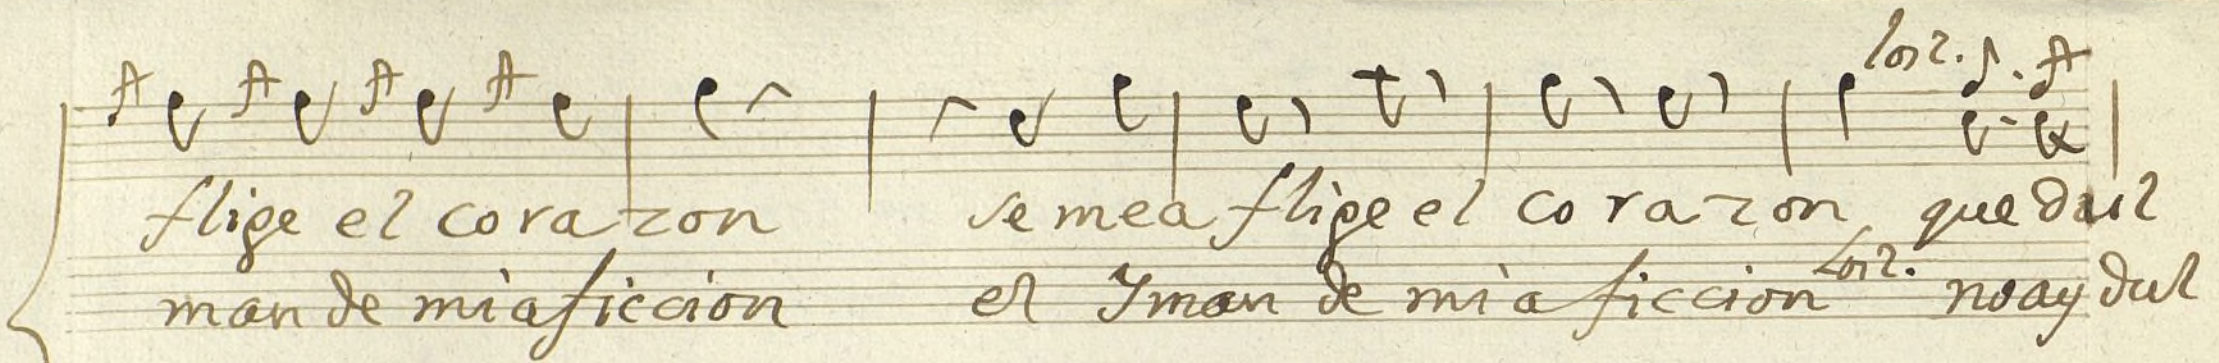 los 2.
flige el corazon se mea flige el corazon que dul
Los 2.
man de mi aficcion el Yman de mi aficcion no ay dul